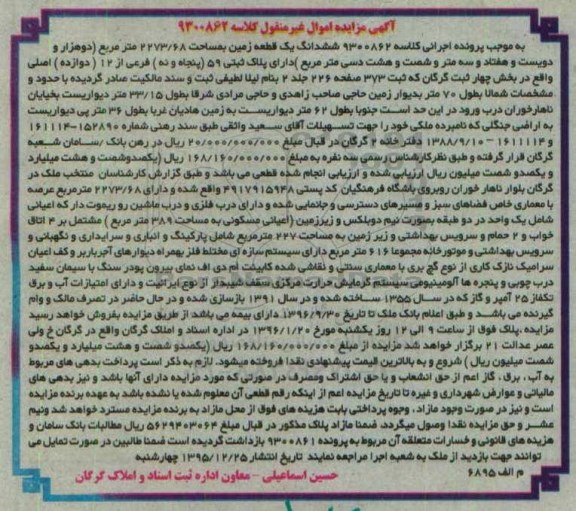 آگهی مزایده اموال غیرمنقول کلاسه ۹۳۰۰۸۶۲
به موجب پرونده اجرائی کلاسه ۹۳۰۰۸۶۲ ششدانگ یک قطعه زمین بمساحت ۲۲۷۳/۶۸ متر مربع (دوهزار و
دویست و هفتاد و سه متر و شصت و هشت دسی متر مربع) دارای پلاک ثبتی ۵۹ (پنجاه و نه) فرعی از ۱۲ (دوازده) اصلی
واقع در بخش چهار ثبت گرگان که ثبت ۳۷۳ صفحه ۲۲۶ جلد ۲ بنام لیلا لطیفی ثبت و سند مالکیت صادر گردیده با حدود و
مشخصات شمالا بطول ۷۰ متر بدیوار زمین حاجی صاحب زاهدی و حاجی مرادی شرقا بطول ۳۳/۱۵ متر دیواریست بخیابان
ناهارخوران درب ورود در این حد است جنوبا بطول ۶۲ متر دیواریست به زمین هادیان غربا بطول ۳۶ متر پی دیواریست
به اراضی جنگلی که نامبرده ملکی خود را جهت تسهیلات آقای سعید واثقی طبق سند رهنی شماره ۱۵۲۸۹۰-۱۶۱۱۱۴
و ۱۶۱۱۱۴ – ۱۳۸۸/۹/۱۰ دفترخانه ۲ گرگان در قبال مبلغ ۲۰/۰۰۰/۰۰۰/۰۰۰ ریال در رهن بانک سامان شعبه
گرگان قرار گرفته و طبق نظر کارشناس رسمی سه نفره به مبلغ ۱۶۸/۱۶۰/۰۰۰/۰۰۰ ریال (یکصدوشصت و هشت میلیارد
و یکصدو شصت میلیون ریال ارزیابی شده و ارزیابی انجام شده قطعی می باشد و طبق گزارش کارشناسان منتخب ملک در
گرگان بلوار ناهار خوران روبروی باشگاه فرهنگیان کد پستی ۴۹۱۷۹۱۵۹۴۸ واقع شده و دارای ۲۲۷۳/۶۸ مترمربع عرصه
با معماری خاص فضاهای سبز و مسیرهای دسترسی و جانمایی شده و دارای درب فلزی و درب ماشین رو ریموت دار که اعیانی
شامل یک واحد در دو طبقه بصورت نیم دوبلکس و زیرزمین (اعیانی مسکونی به مساحت ۳۸۹ متر مربع) مشتمل بر ۴ اتاق
خواب و ۲ حمام و سرویس بهداشتی و زیر زمین به مساحت ۲۲۷ مترمربع شامل پارکینگ و انباری و سرایداری و نگهبانی و
سرویس بهداشتی و موتورخانه مجموعا ۶۱۶ متر مربع دارای سیستم سازه ای مختلط فلز بهمراه دیوارهای آجربر و کف اعیان
سرامیک نازک کاری از نوع گچ بری با معماری سنتی و نقاشی شده کابینت ام دی اف نمای بیرون پودر سنگ با سیمان سفید
درب چوبی و پنجره ها آلومینیومی سیستم گرمایش حرارت مرکزی سقف شیبدار از نوع ایرانیت و دارای امتیازات آب و برق
تکفاز ۲۵ آمپر و گاز که در سال ۱۳۵۵ ساخته شده و در سال ۱۳۹۱ بازسازی شده و در حال حاضر در تصرف مالک و وام
گیرنده می باشد و طبق اعلام بانک ملک تا تاریخ ۱۳۹۶/۹/۳۰ دارای بیمه می باشد از طریق مزایده بفروش خواهد رسید
مزایده ،پلاک فوق از ساعت ۹ الی ۱۲ روز یکشنبه مورخ ۱۳۹۶/۱/۲۰ در اداره اسناد و املاک گرگان واقع در گرگان خ ولی
عصر عدالت ۲۱ برگزار خواهد شد مزایده از مبلغ ۱۶۸/۱۶۰/۰۰۰/۰۰۰ ریال (یکصدو شصت و هشت میلیارد و یکصدو
شصت میلیون ریال) شروع و به بالاترین قیمت پیشنهادی نقدا فروخته میشود. لازم به ذکر است پرداخت بدهی های مربوط
به آب ، برق ، گاز اعم از حق انشعاب و یا حق اشتراک ومصرف در صورتی که مورد مزایده دارای آنها باشد و نیز بدهی های
مالیاتی و عوارض شهرداری و غیره تا تاریخ مزایده اعم از اینکه رقم قطعی آن معلوم شده یا نشده باشد به عهده برنده مزایده
است و نیز در صورت وجود مازاد ، وجوه پرداختی بابت هزینه های فوق از محل مازاد به برنده مزایده مسترد خواهد شد ونیم
عشر و حق مزایده نقدا وصول میگردد، ضمنا مازاد پلاک مذکور در قبال مبلغ ۵۶۲۹۴۰۳۰۶۴ ریال مطالبات بانک سامان و
هزینه های قانونی و خسارات متعلقه آن مربوط به پرونده ۹۳۰۰۸۶۱ بازداشت گردیده است ضمنا طالبین در صورت تمایل می
توانند جهت بازدید از ملک به شعبه اجرا مراجعه نمایند تاریخ انتشار ۱۳۹۵/۱۲/۲۵ چهارشنبه
م الف ۶۸۹۵
حسین اسماعیلی – معاون اداره ثبت اسناد و املاک گرگان